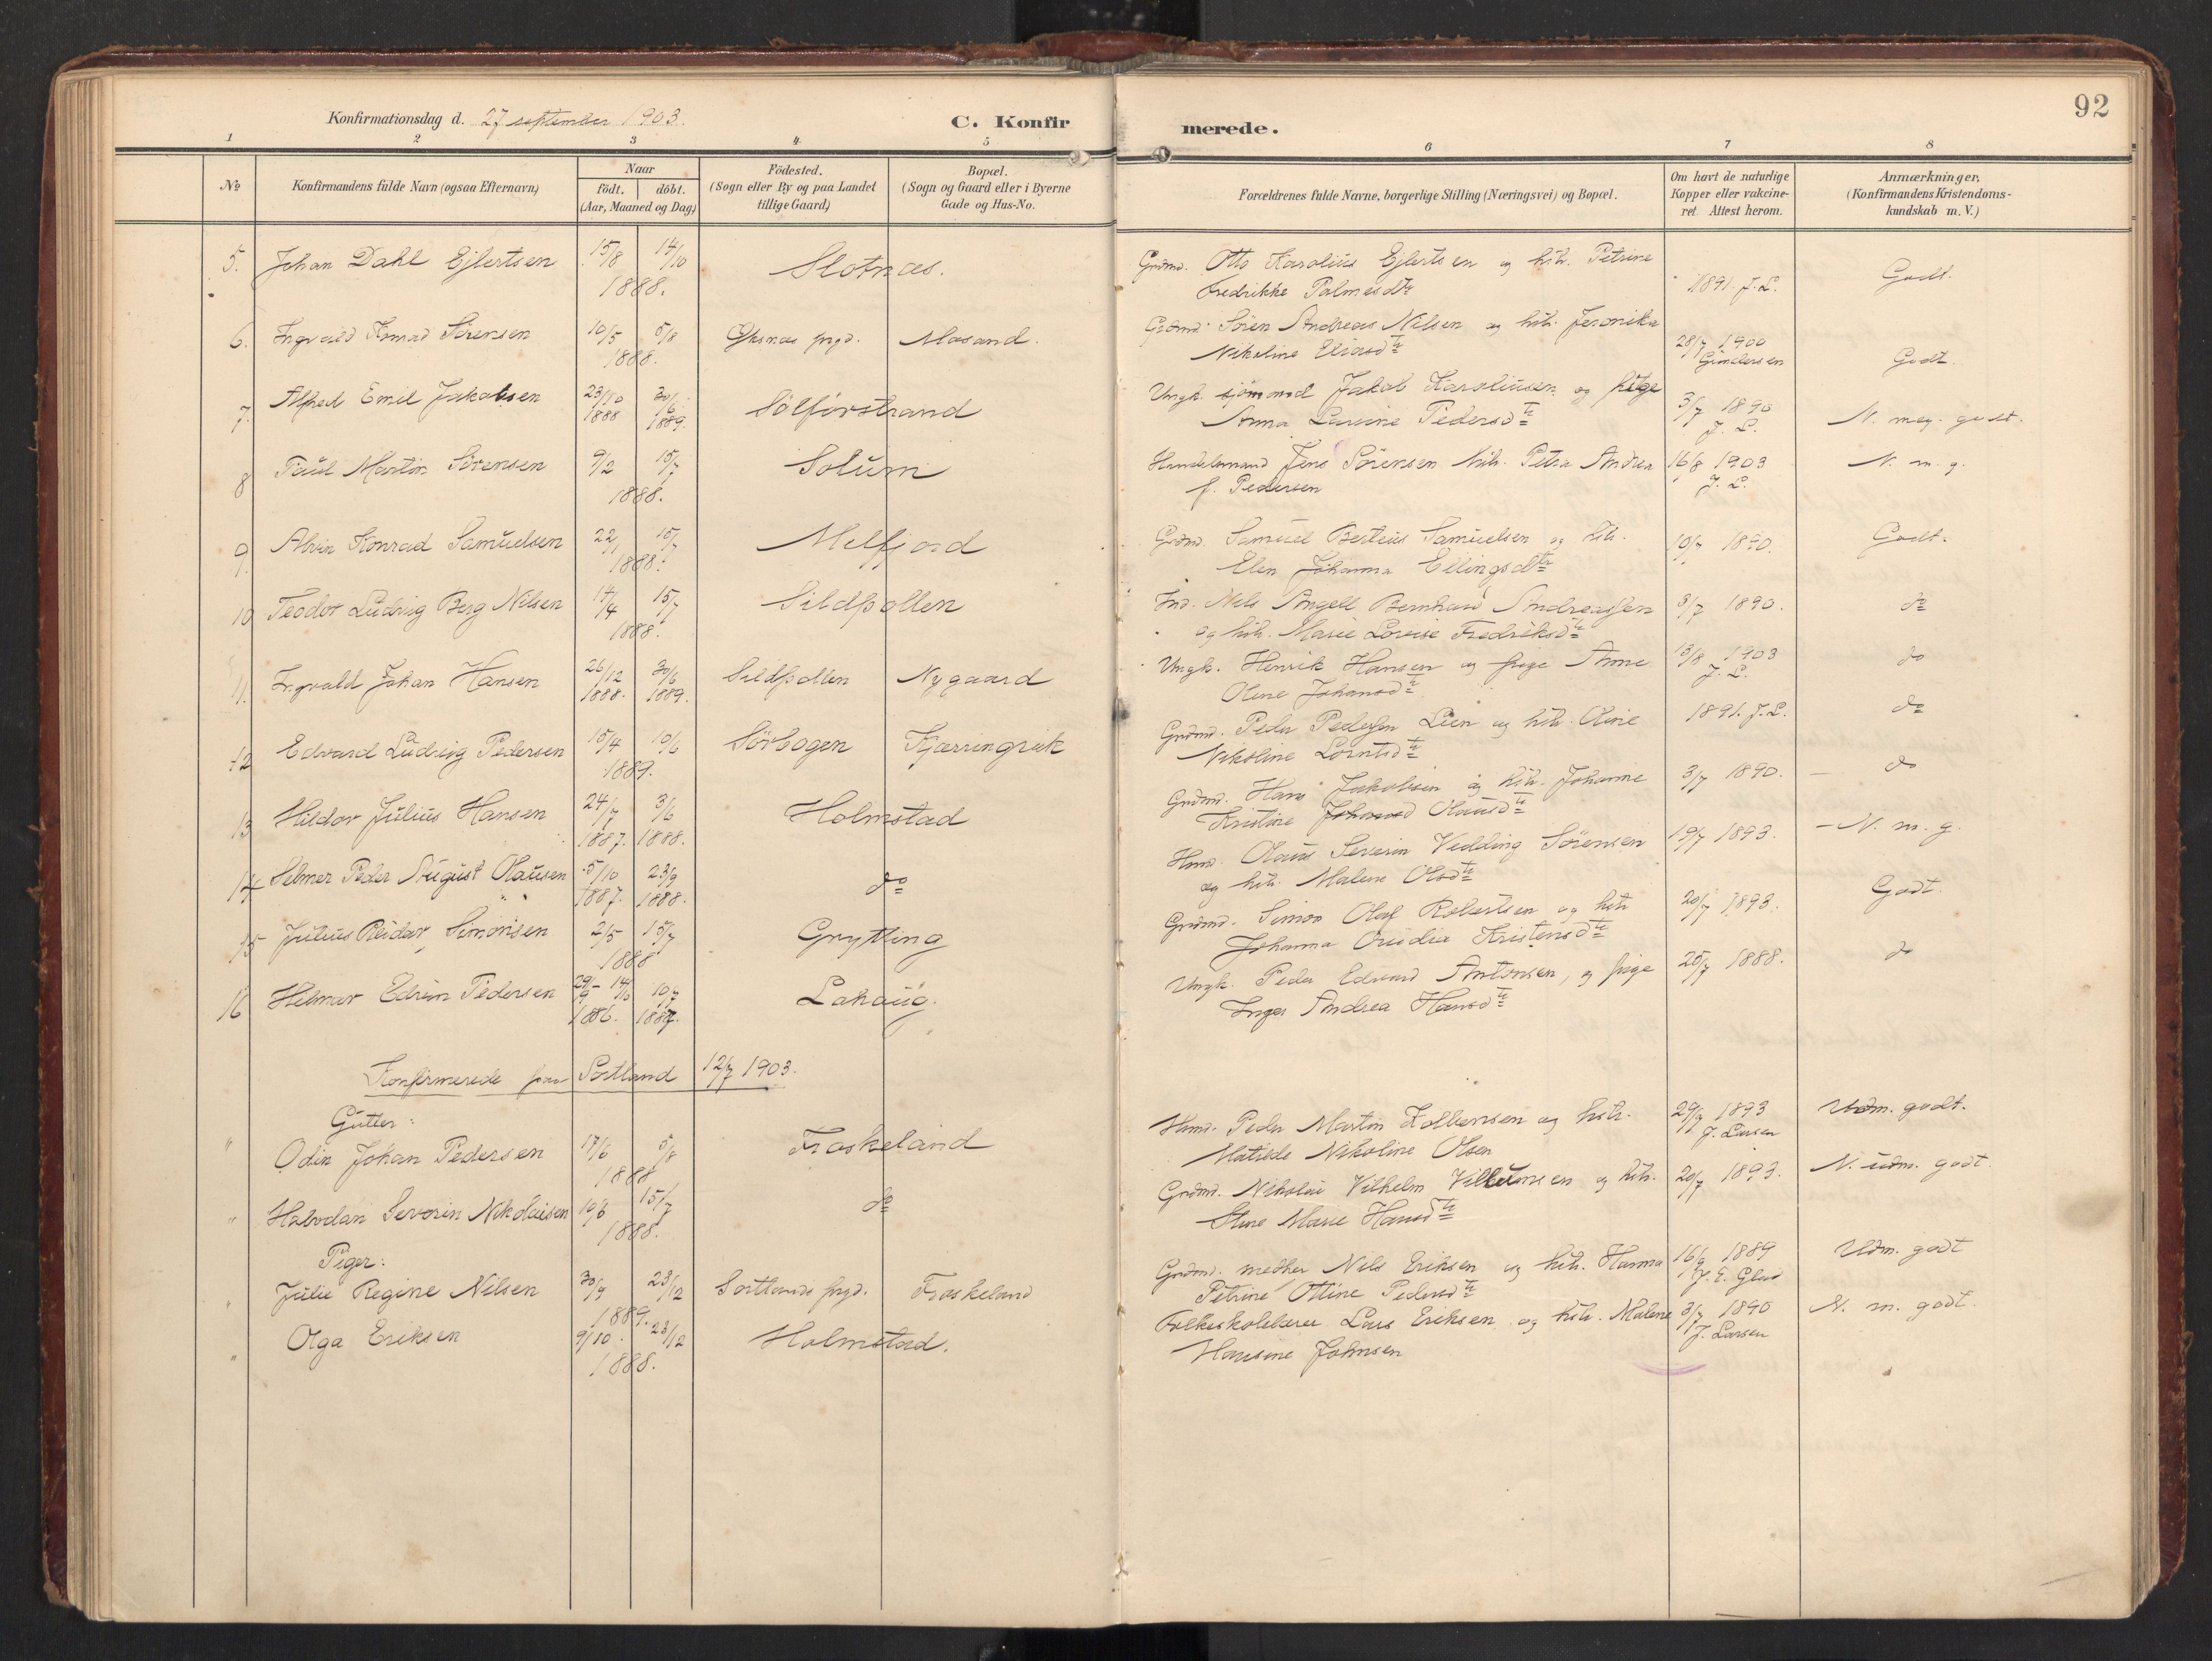 Konfirmationsdag d. 27 september 1903.
C. Konfir
1 2 3 4 5
№
Konfirmandens fulde Navn (ogsaa Efternavn)
Naar
födt. döbt.
(Aar, Maaned og Dag)
Födested.
(Sogn eller By og paa Landet
tillige Gaard)
Bopæl.
(Sogn og Gaard eller i Byerne
Gade og Hus-No.
5. Johan Dahl Ejlertsen 15/8 14/10 Slotnæs.
1888.
6. Ingvald Konrad Sörensen 10/5 5/8 Öksnæs prgd. Maasand.
1888.
7. Alfred Emil Jakobsen 23/10 30/6 Sölförstrand
1888 1889.
8 Paul Martin Sörensen 9/2 15/7 Solum
1888.
9. Alvin Konrad Samuelsen 22/1 15/7 Melfjord
1888.
10 Teodor Ludvig Berg Nilsen 14/4 15/7 Sildpollen
1888.
11. Ingvald Johan Hansen 26/12 30/6 Sildpollen Nygaard
1888. 1889.
12 Edvard Ludvig Pedersen 15/4 10/6 Sörbogen Kjærringvik
1889.
13 Hildor Julius Hansen 24/7 3/6 Holmstad
1887. 1888.
14 Selmer Peder August Olausen 5/10 23/9 do
1887. 1888.
15 Julius Reidar Simonsen 2/5 15/7 Grytting
1888
16 Helmer Edvin Pedersen 29/9 - 14/10 10/7 Lahaug.
1886. 1887.
Konfirmerede paa Sortland 12/7 1903.
Gutter:
" Odin Johan Pedersen 17/6 5/8 Fraskeland
1888
" Halvdan Severin Nikolaisen 10/6 15/7 do
1888.
Piger:
" Julie Regine Nilsen 30/9 23/12 Sortlands prgd. Fraskeland
1889.
" Olga Eriksen 9/10. 23/12 Holmstad.
1888.
92
merede.
6 7 8
Forældrenes fulde Navne, borgerlige Stilling (Næringsvei) og Bopæl.
Om havt de naturlige
Kopper eller vakcine-
ret Attest herom.
Anmærkninger.
(Konfirmandens Kristendoms-
kundskab m. V.)
Grdmd. Otto Karolius Ejlertsen og hstr. Petrine
Fredrikke Palmesdtr 1891. J.L. Godt.
Grdmd. Sören Andreas Nilsen og hstr. Jeronika
Nikoline Eliasdtr 28/7 1900 Godt.
Ungk. sjömand Jakob Karoliusen og pige
Anna Lavine Pedersdtr 3/7 1890 J. L. N. meg. godt.
Handelsmand Jens Sörensen hstr. Petra Andrea 16/8 1903 N. m. g.
f. Pedersen J. L.
Grdmd. Samuel Berteus Samuelsen og hstr. 10/7 1890. Godt.
Elen Johanna Ellingsdtr
Ind. Nils Angell Bernhard Andreassen 3/7 1890. do
og hstr. Marie Lovise Fredriksdtr
Ungk. Henrik Hansen og pige Anne 13/8 1903 do
Oline Johansdtr J. L.
Grdmd. Peder Pedersen Lien og hstr. Oline 1891. J.L. do
Nikoline Lorntsdtr
Grdmd. Hans Jakobsen og hstr. Johanne 3/7 1890. - do
Kristine Johansd Olausdtr
Hmd. Olaus Severin Vedding Sörensen 19/7 1893. - N. m. g.
og hstr. Malene Olsdtr
Grdmd. Simon Olaf Robertsen og hstr 20/7 1893. Godt.
Johanna Ovidia Kristensdtr
Ungk. Peder Edvard Antonsen, og pige 25/7 1888. do
Inger Andrea Hansdtr
Hmd. Peder Martin Torbersen og hstr. 29/7 1893 Udm. godt.
Matilde Nikoline Olsen J. Larsen
Grdmd. Nikolai Vilhelm Villumsen og hstr. 20/7 1893. N. udm. godt.
Stine Marie Hansdtr
Grdmd. medher Nils Eriksen og hstr. Hanna 16/9 1889 Udm. godt
Petrine Ottine Pedersdtr
Folkeskolelærer Lars Eriksen og hstr. Malene 3/7 1890 N. m. godt.
Hansine Johnsen J. Larsen